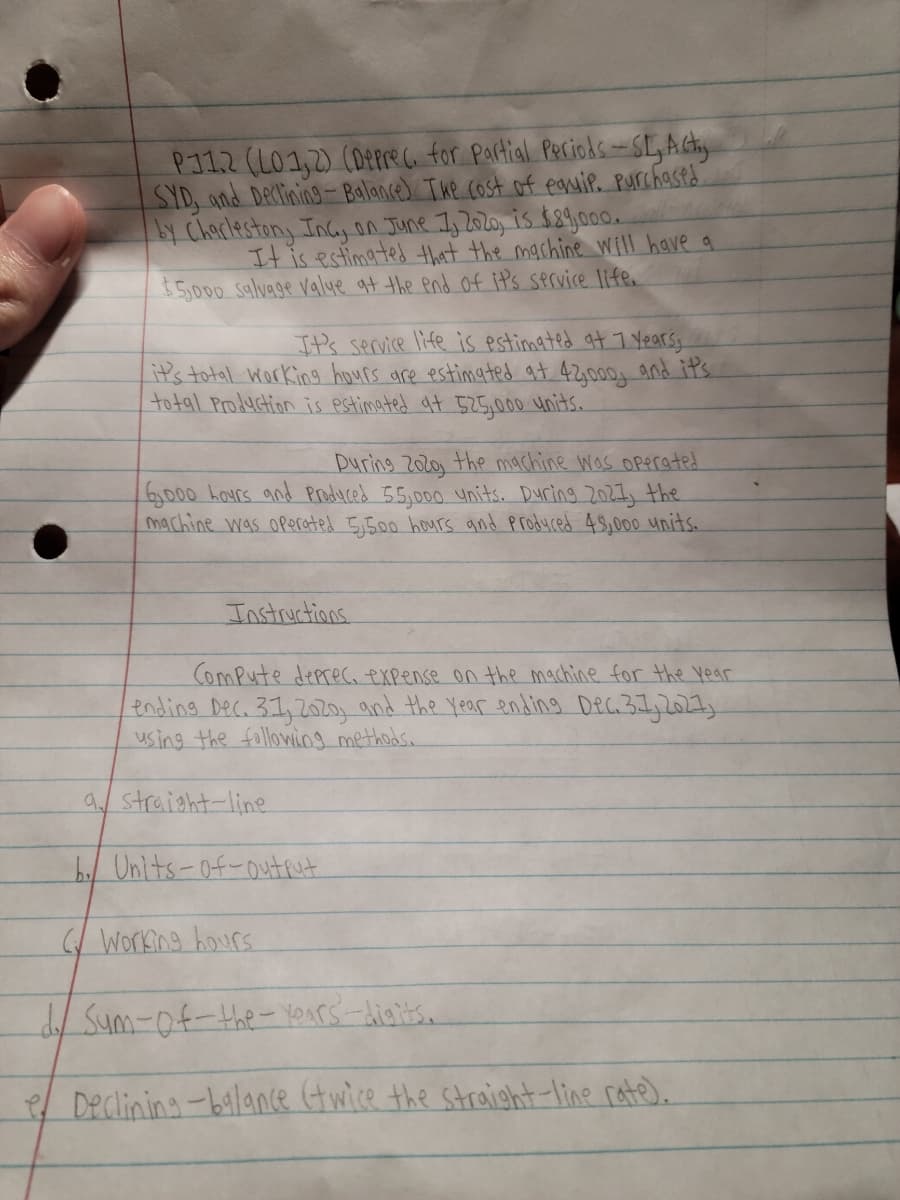 P11.2 (LO 1,2) (Deprec. for Partial Periods-SL, Act.,
SYD, and Declining-Balance) The cost of equip. purchased
by Charleston, Inc., on June 1, 2020, is $89,000.
It is estimated that the machine will have a
$5,000 salvage value at the end of it's service life.
It's service life is estimated at 7 years;
it's total working hours are estimated at 42,000; and it's
total production is estimated at 525,000 units.
During 2020, the machine was operated
6,000 hours and produced 55,000 units. During 2021, the
machine was operated 5,500 hours and produced 48,000 units.
Instructions
Compute deprec. expense on the machine for the year
ending Dec. 31, 2020, and the year ending Dec. 31, 2021,
using the following methods.
a. straight-line
b. Units-of-output
c. Working hours
d. Sum-of-the-years'-digits.
e. Declining-balance (twice the straight-line rate).